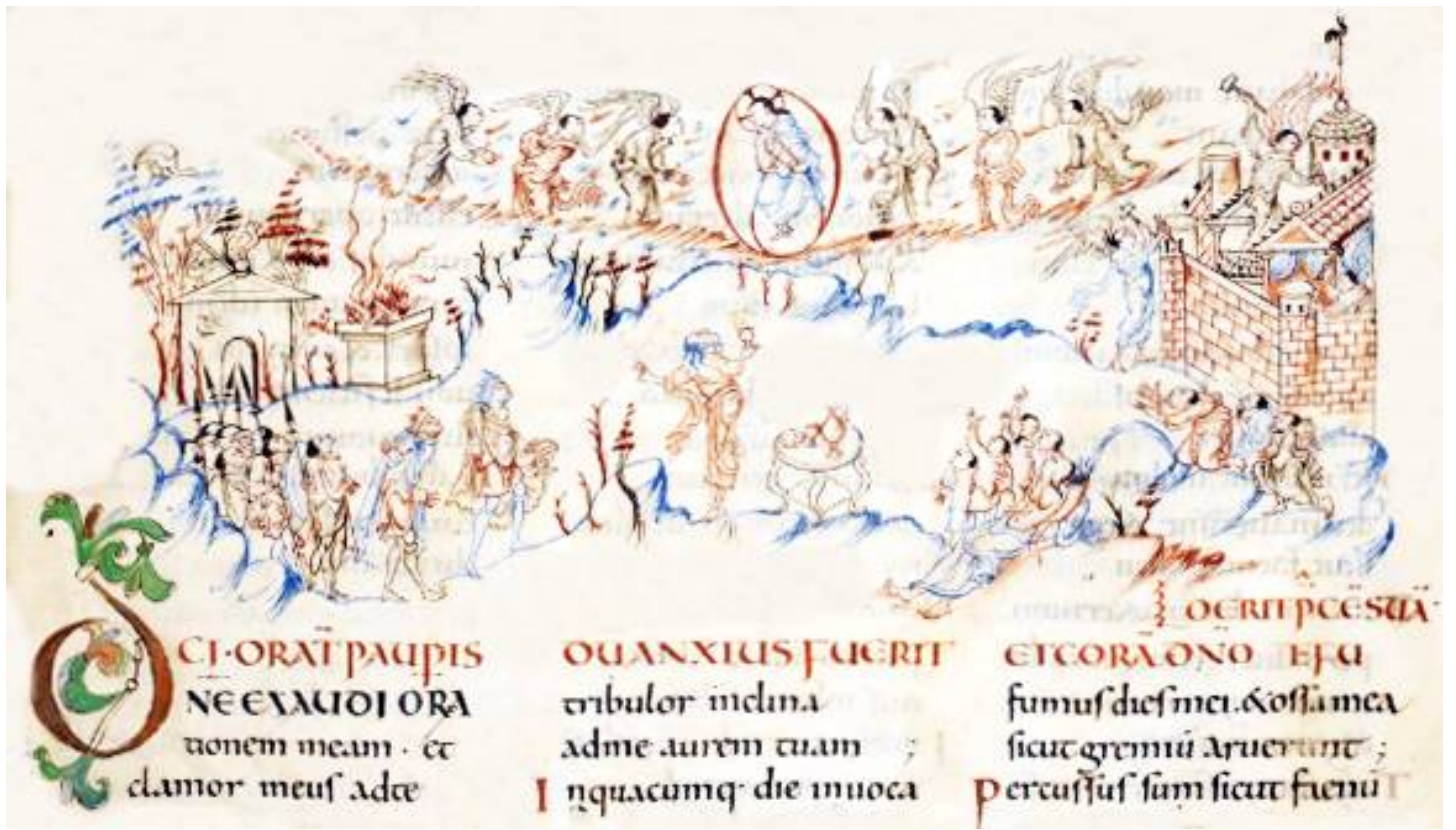 CI·ORAT̄ PAUPIS
DNE EXAUDI ORA
tionem meam · et
clamor meus adte
QUANXIUS FUERIT
tribulor inclina
adme aurem tuam ;
Inquacumq· die inuoca
DERIT P̄CĒ SUĀ·
ET CORĀ DN̄O EFFU
fumus dies mei. & ossa mea
sicut gremiū aruerunt ;
Percussus sum sicut faenū